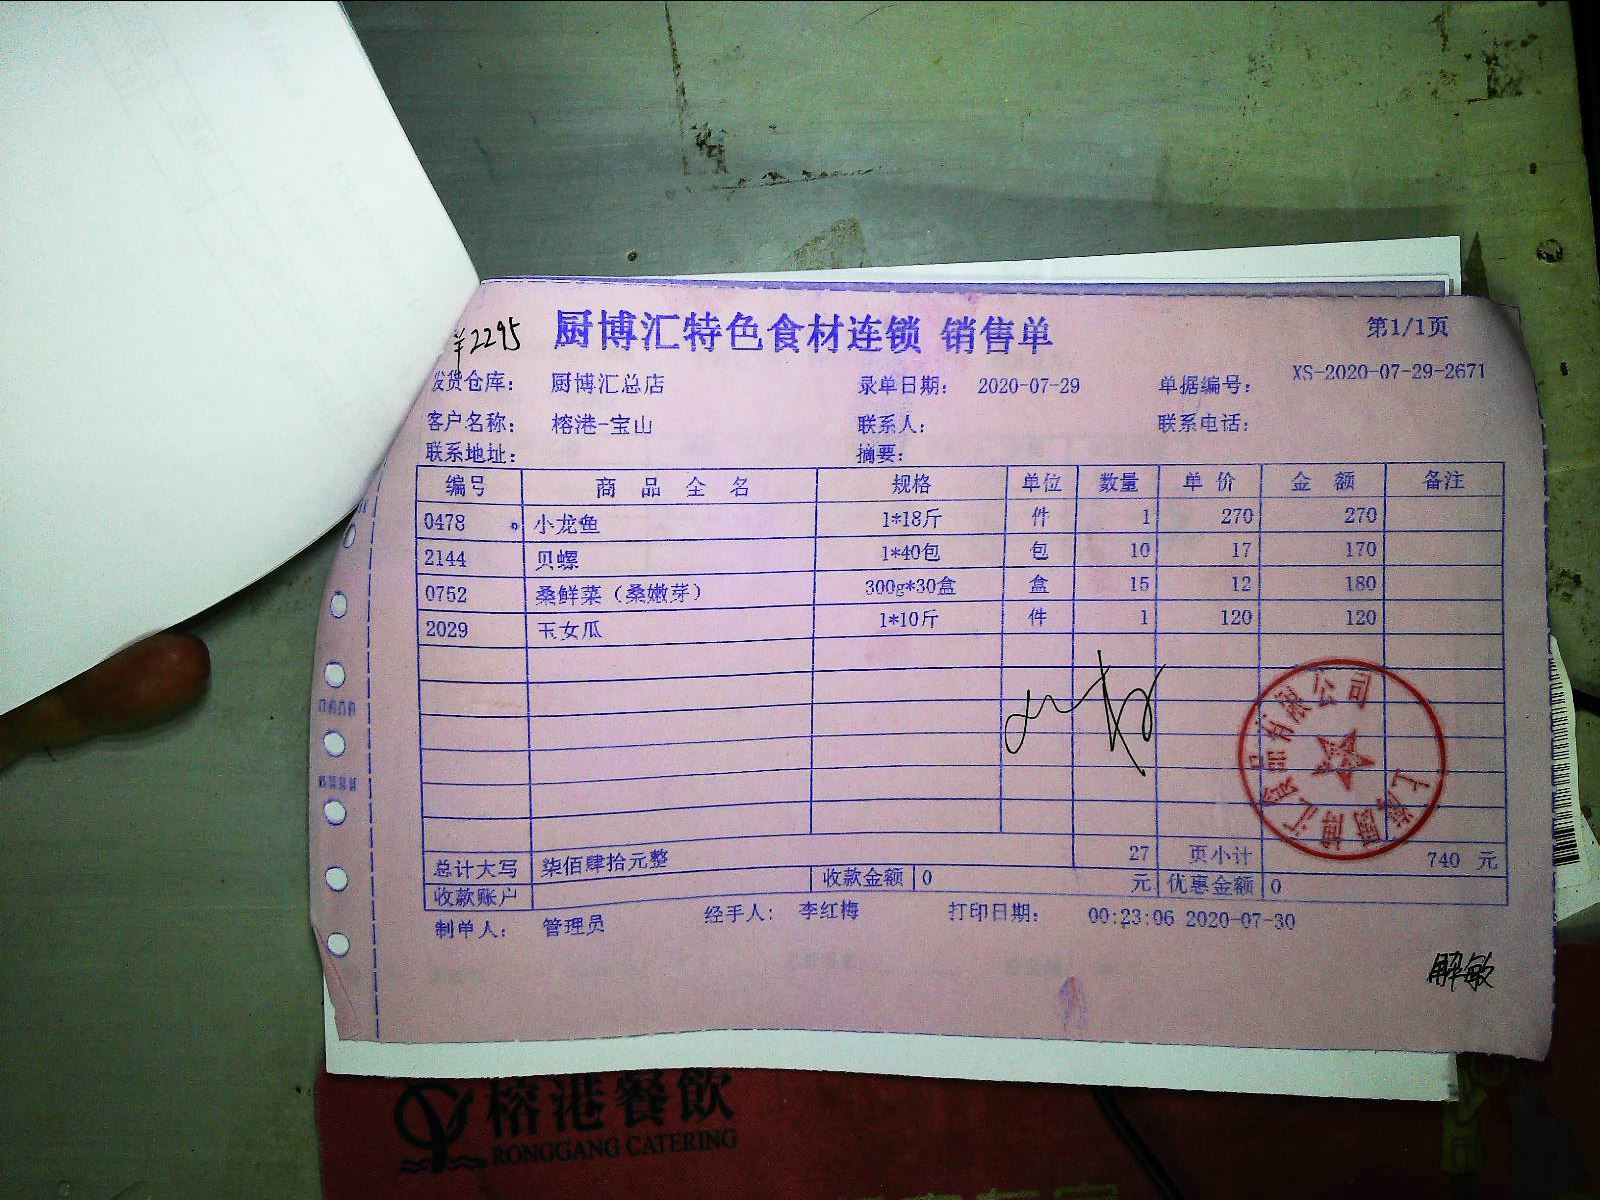 ¥2295
厨博汇特色食材连锁 销售单
第1/1页
发货仓库： 厨博汇总店 录单日期： 2020-07-29 单据编号： XS-2020-07-29-2671
客户名称： 榕港-宝山 联系人： 联系电话：
联系地址： 摘要：
编号 商品全名 规格 单位 数量 单价 金额 备注
0478 小龙鱼 1*18斤 件 1 270 270
2144 贝螺 1*40包 包 10 17 170
0752 桑鲜菜（桑嫩芽） 300g*30盒 盒 15 12 180
2029 玉女瓜 1*10斤 件 1 120 120
上海厨博汇食品有限公司
总计大写 柒佰肆拾元整 27 页小计 740 元
收款账户 收款金额 0 元 优惠金额 0
制单人： 管理员 经手人： 李红梅 打印日期： 00:23:06 2020-07-30
解敏
榕港餐飲
RONGGANG CATERING